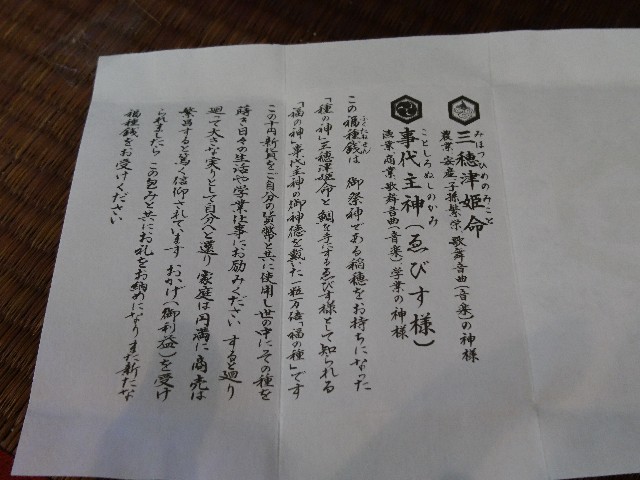 みほつひめのみこと
三穂津姫命
農業 安産 子孫繁栄 歌舞音曲(音楽)の神様
ことしろぬしのかみ
事代主神(ゑびす様)
漁業 商業 歌舞音曲(音楽)学業の神様
ふくたねせん
この福種銭は 御祭神である稲穂をお持ちになった
「種の神」三穂津姫命と鯛を手にするゑびす様として知られる
「福の神」事代主神の御神徳を戴いた一粒万倍「福の種」です
この十円新貨をご自分の貨幣と共に使用し世の中にその種を
蒔き日々の生活や学業仕事にお励みください すると廻り
廻って大きな実りとして自分へと還り 家庭は円満に 商売は
繁昌すると篤く信仰されています おかげ(御利益)を受け
られましたら この包みと共にお礼をお納めになりまた新たな
福種銭をお受けください